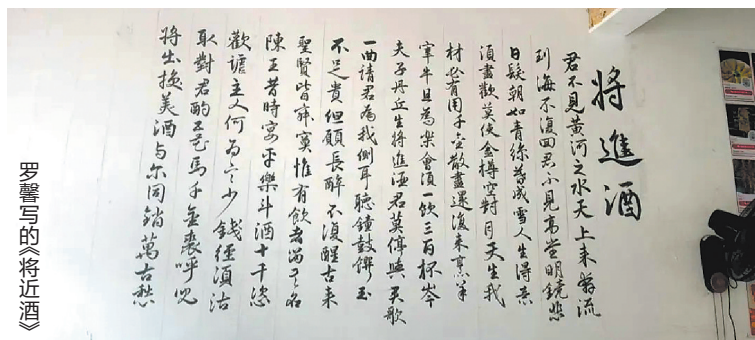 將進酒
君不見黃河之水天上来奔流
到海不復回君不見高堂明鏡悲
白髮朝如青絲暮成雪人生得意
須盡歡莫使金樽空對月天生我
材必有用千金散盡還復来烹羊
宰牛且為樂會須一飲三百杯岑
夫子丹丘生將進酒君莫停與君歌
一曲請君為我側耳聽鐘鼓饌玉
不足貴但願長醉不復醒古来
聖賢皆寂寞惟有飲者留其名
陳王昔時宴平樂斗酒十千恣
歡謔主人何為言少錢徑須沽
取對君酌五花馬千金裘呼兒
將出換美酒与尔同銷萬古愁
罗馨写的《将近酒》